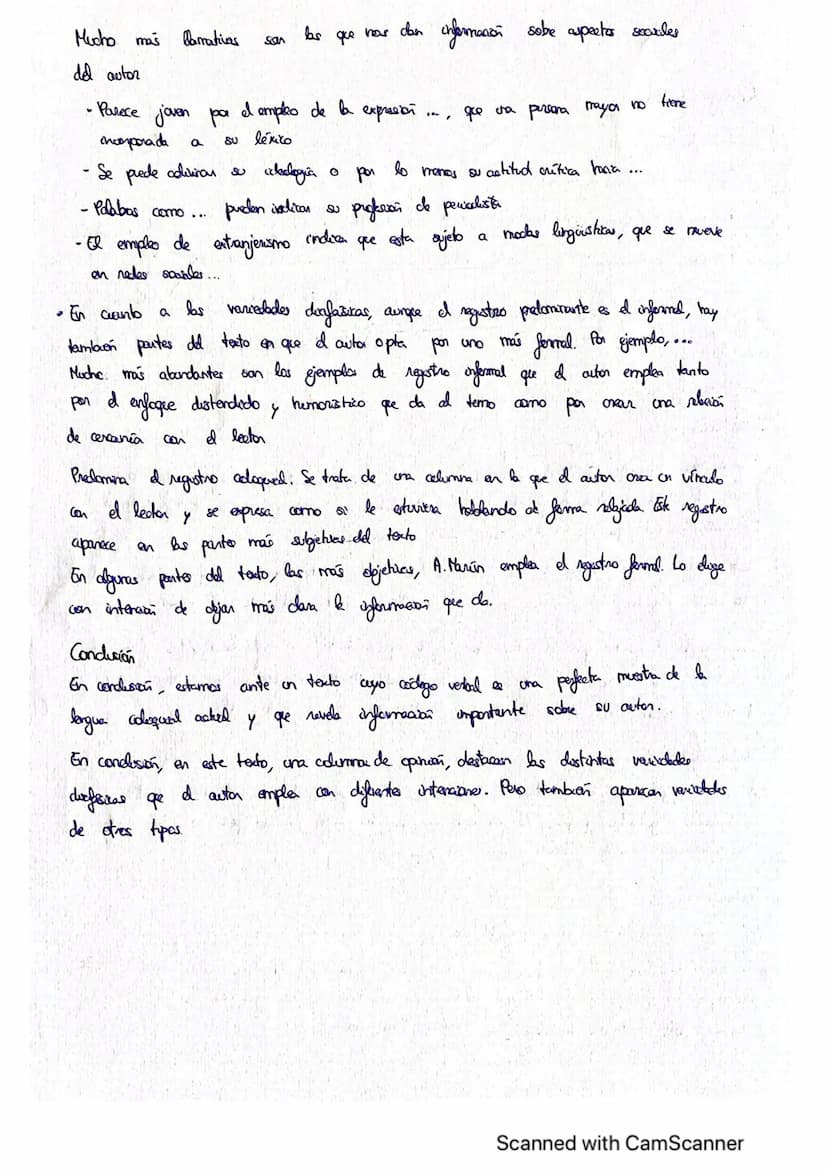 Mucho más llamativas son las que nos dan información sobre aspectos sociales
del autor
- Parece joven por el empleo de la expresión ..., que una persona mayor no tiene
incorporada a su léxico
- Se puede adivinar su ideología o por lo menos su actitud crítica hacia ...
- Palabas como ... pueden indicar su profesión de periodista
- El empleo de extranjerismo indica que esta sujeto a modas lingüísticas, que se mueve
en redes sociales...
• En cuanto a las variedades diafásicas, aunque el registro predominante es el informal, hay
también partes del texto en que el autor opta por uno más formal. Por ejemplo, ...
Mucho más abundantes son los ejemplos de registro informal que el autor emplea tanto
por el enfoque distendido y humorístico que da al tema como por crear una relación
de cercanía con el lector
Predomina el registro coloquial. Se trata de una columna en la que el autor crea un vínculo
con el lector y se expresa como si le estuviera hablando de forma relajada Este registro
aparece en las partes más subjetivas del texto
En algunas partes del texto, las más objetivas, A. Marín emplea el registro formal. Lo elige
con intención de dejar más clara la información que da.
Conclusión
En conclusión, estamos ante un texto cuyo código verbal es una perfecta muestra de la
lengua coloquial actual y que revela información importante sobre su autor.
En conclusión, en este texto, una columna de opinión, destacan las distintas variedades
diafásicas que el autor emplea con diferentes intenciones. Pero también aparecen variedades
de otros tipos
Scanned with CamScanner